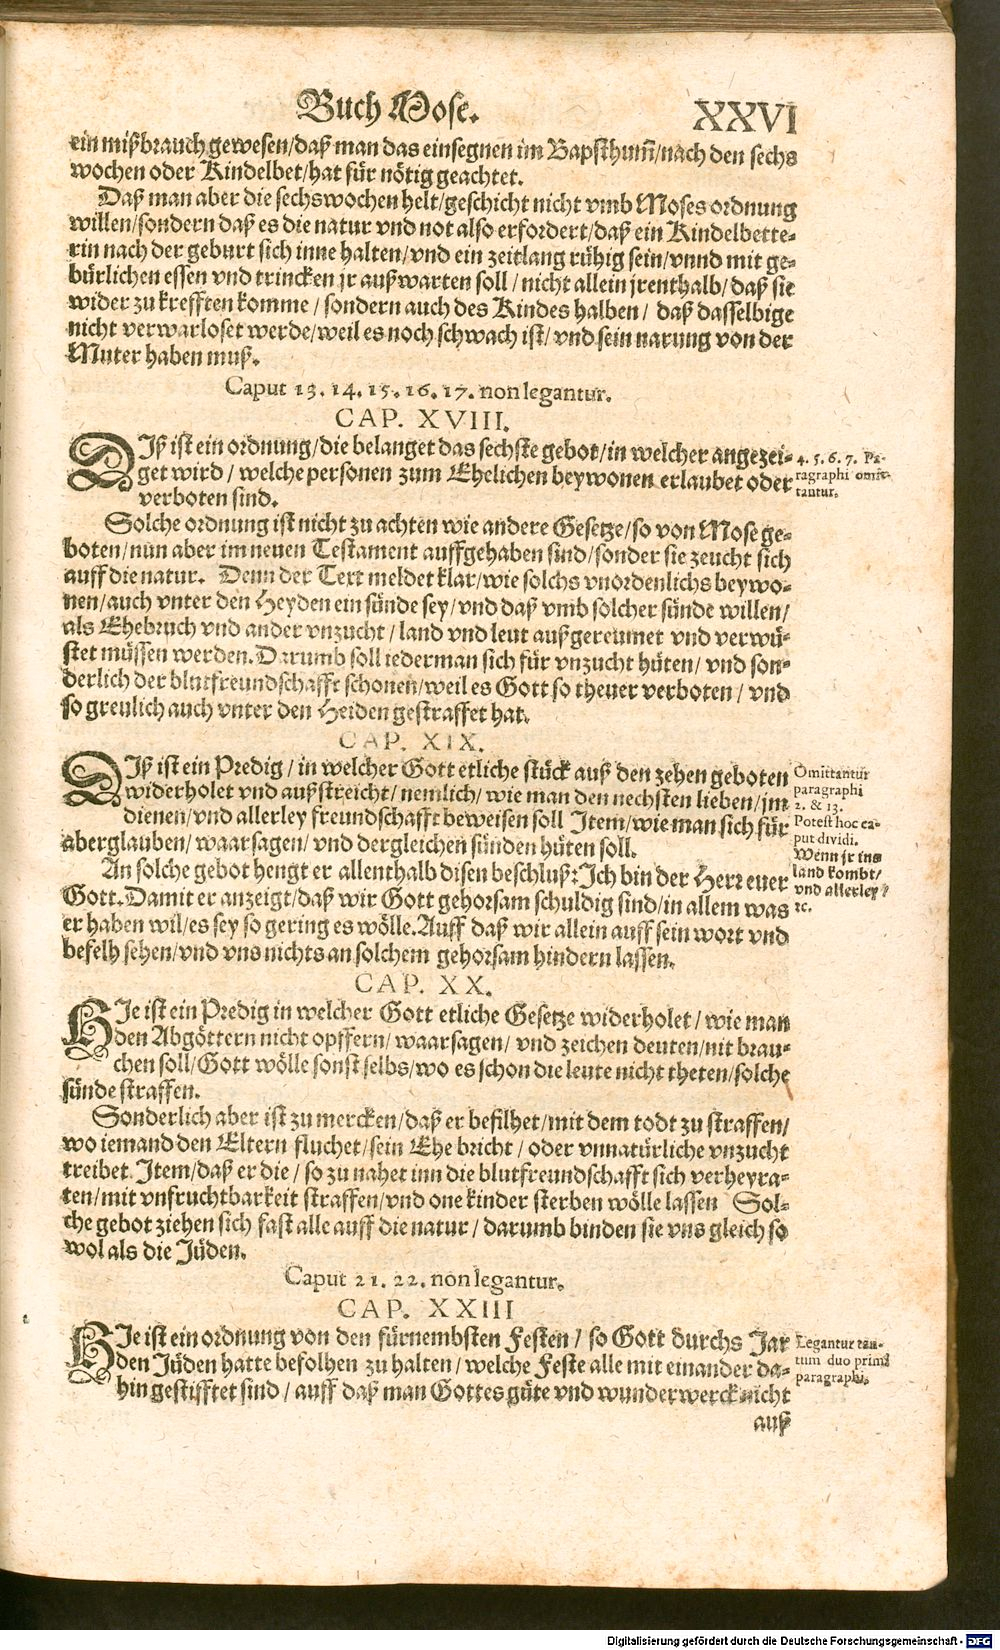 Buch Mose. XXVI
ein mißbrauch gewesen/daß man das einsegnen im Bapsthum̃/nach den sechs
wochen oder Kindelbet/hat für nötig geachtet.
Daß man aber die sechswochen helt/geschicht nicht vmb Moses ordnung
willen/sondern daß es die natur vnd not also erfordert/daß ein Kindelbette-
rin nach der geburt sich inne halten/vnd ein zeitlang rühig sein/vnnd mit ge-
bürlichen essen vnd trincken jr außwarten soll/nicht allein jrenthalb/daß sie
wider zu krefften komme/sondern auch des Kindes halben/daß dasselbige
nicht verwarloset werde/weil es noch schwach ist/vnd sein narung von der
Muter haben muß.
Caput 13. 14. 15. 16. 17. non legantur.
CAP. XVIII.
DIß ist ein ordnung/die belanget das sechste gebot/in welcher angezei-
get wird/welche personen zum Ehelichen beywonen erlaubet oder
verboten sind.
4. 5. 6. 7. Pa-
ragraphi omit-
tantur.
Solche ordnung ist nicht zu achten wie andere Gesetze/so von Mose ge-
boten/nun aber im neuen Testament auffgehaben sind/sonder sie zeucht sich
auff die natur. Denn der Text meldet klar/wie solchs vnordenlichs beywo-
nen/auch vnter den Heyden ein sünde sey/vnd daß vmb solcher sünde willen/
als Ehebruch vnd ander vnzucht/land vnd leut außgereumet vnd verwü-
stet müssen werden. Darumb soll iederman sich für vnzucht hüten/vnd son-
derlich der blutfreundschafft schonen/weil es Gott so theuer verboten/vnd
so greulich auch vnter den Heiden gestraffet hat.
CAP. XIX.
DIß ist ein Predig/in welcher Gott etliche stück auß den zehen geboten
widerholet vnd außstreicht/nemlich/wie man den nechsten lieben/jm
dienen/vnd allerley freundschafft beweisen soll Item/wie man sich für
aberglauben/waarsagen/vnd dergleichen sünden hüten soll.
Omittantur
paragraphi
2. & 13.
Potest hoc ca-
put dividi.
Wenn jr ins
land kombt/
vnd allerley/
ꝛc.
An solche gebot hengt er allenthalb disen beschluß: Ich bin der Herr euer
Gott. Damit er anzeigt/daß wir Gott gehorsam schuldig sind/in allem was
er haben wil/es sey so gering es wölle. Auff daß wir allein auff sein wort vnd
befelh sehen/vnd vns nichts an solchem gehorsam hindern lassen.
CAP. XX.
HIe ist ein Predig in welcher Gott etliche Gesetze widerholet/wie man
den Abgöttern nicht opffern/waarsagen/vnd zeichen deuten/nit brau-
chen soll/Gott wölle sonst selbs/wo es schon die leute nicht theten/solche
sünde straffen.
Sonderlich aber ist zu mercken/daß er befilhet/mit dem todt zu straffen/
wo iemand den Eltern fluchet/sein Ehe bricht/oder vnnatürliche vnzucht
treibet. Item/daß er die/so zu nahet inn die blutfreundschafft sich verheyra-
ten/mit vnfruchtbarkeit straffen/vnd one kinder sterben wölle lassen Sol-
che gebot ziehen sich fast alle auff die natur/darumb binden sie vns gleich so
wol als die Jüden.
Caput 21. 22. non legantur.
CAP. XXIII
HIe ist ein ordnung von den fürnembsten Festen/so Gott durchs Jar
den Jüden hatte befolhen zu halten/welche Feste alle mit einander da-
hin gestifftet sind/auff daß man Gottes güte vnd wunderwerck nicht
Legantur tan-
tum duo primi
paragraphi.
auß
Digitalisierung gefördert durch die Deutsche Forschungsgemeinschaft - DFG